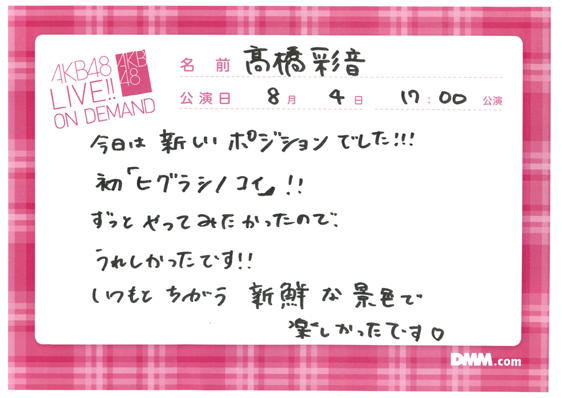 AKB48
LIVE!!
ON DEMAND
AKB
48
名 前 髙橋彩音
公演日 8月 4日 17:00 公演
今日は 新しい ポジション でした!!!
初「ヒグラシノコイ」!!
ずっと やってみたかったので、
うれしかったです!!
いつもと ちがう 新鮮 な 景色で
楽しかったです♡
DMM.com